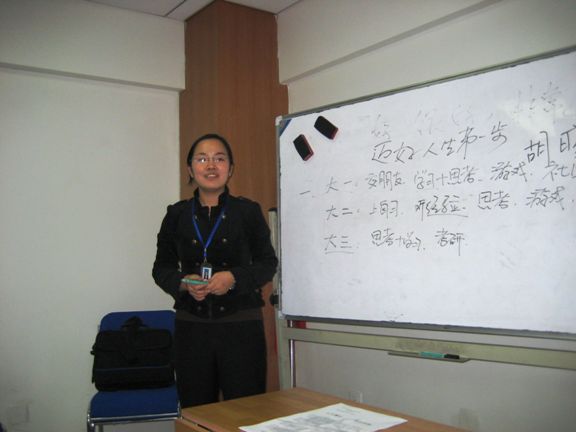 迈好人生第一步 胡
一、大一：交朋友、学习+思考、游戏、社
大二：上自习、研经验、思考、游戏、
大三：思考+学习、考研